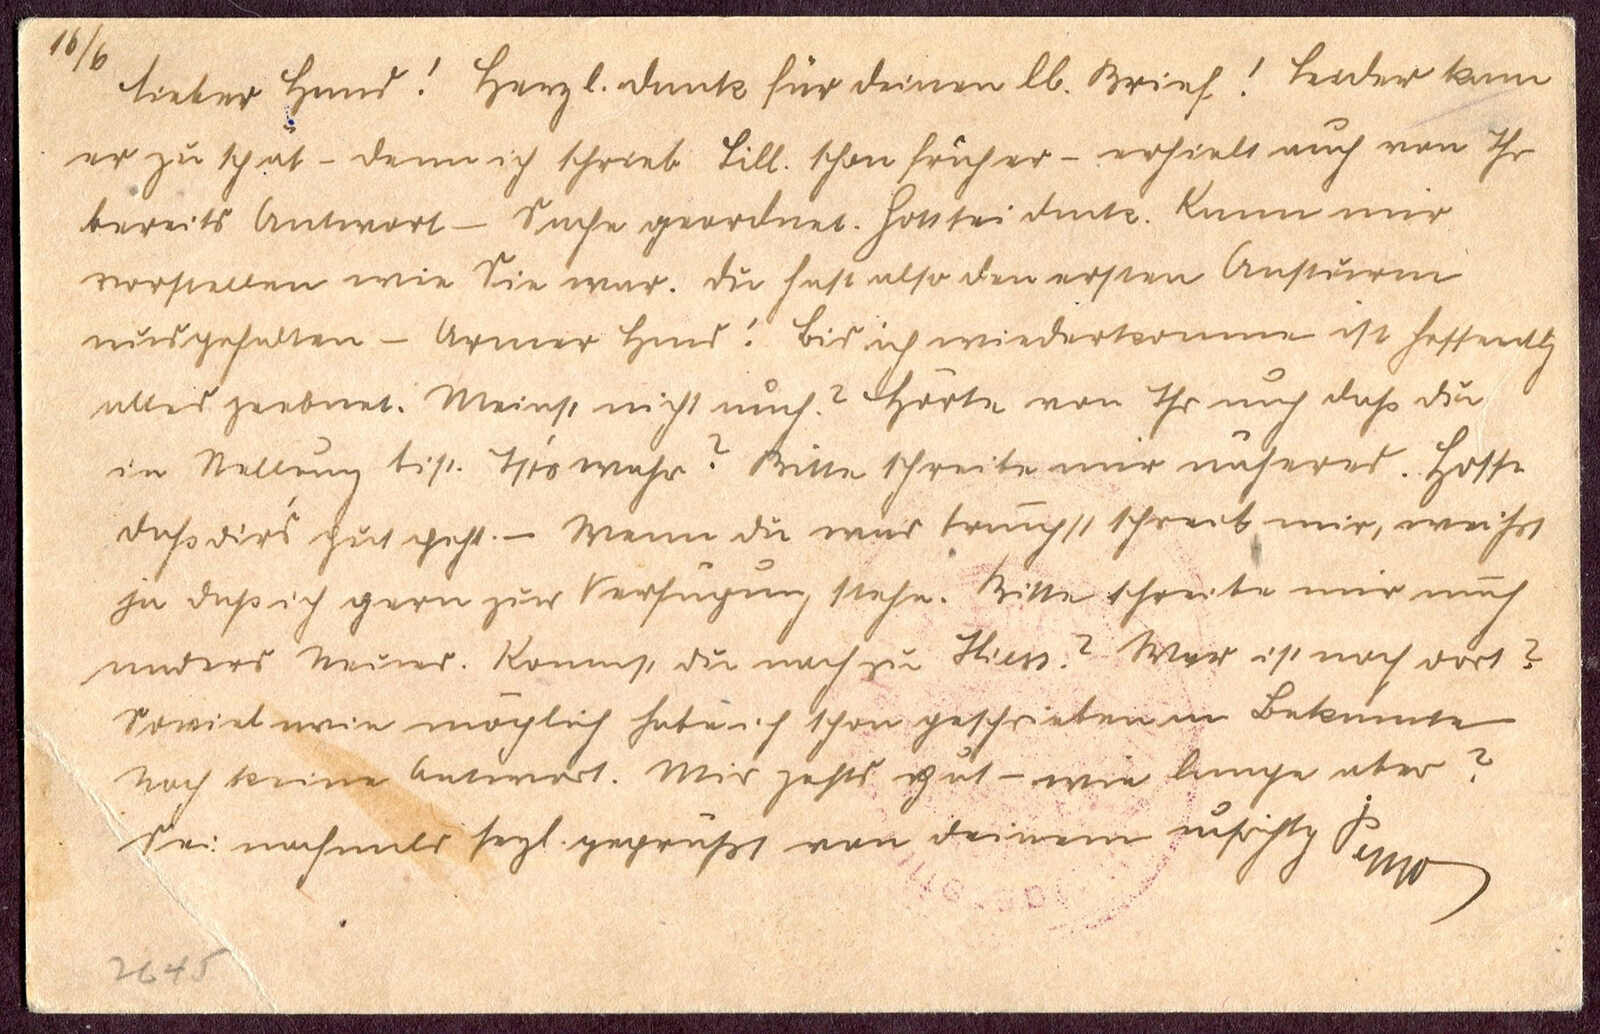 16/6
Lieber Hans! Herzl. Dank für deinen lb. Brief! Leider kam
er zu spät – denn ich schrieb Lill. schon früher – erhielt auch von Ihr
bereits Antwort – Sache geordnet. Gott sei dank. Kann mir
vorstellen wie Sie war. Du hast also den ersten Ansturm
ausgehalten – Armer Hans! Bis ich wiederkomme ist hoffentlich
alles geebnet. Meinst nicht auch? Hörte von Ihr auch daß du
in Stellung bist. Ists wahr? Bitte schreibe mir näheres. Hoffe
daß dir's gut geht. – Wenn du was brauchst schreib mir, weißt
ja daß ich gern zur Verfügung stehe. Bitte schreibe mir auch
anders Neues. Kommst du noch zu ? Wer ist noch dort?
Soviel wie möglich habe ich schon geschrieben an Bekannte
noch keine Antwort. Mir gehts gut – wie lange aber?
Sei nochmals hezl. gegrüßt von deinem aufrichtg
2645